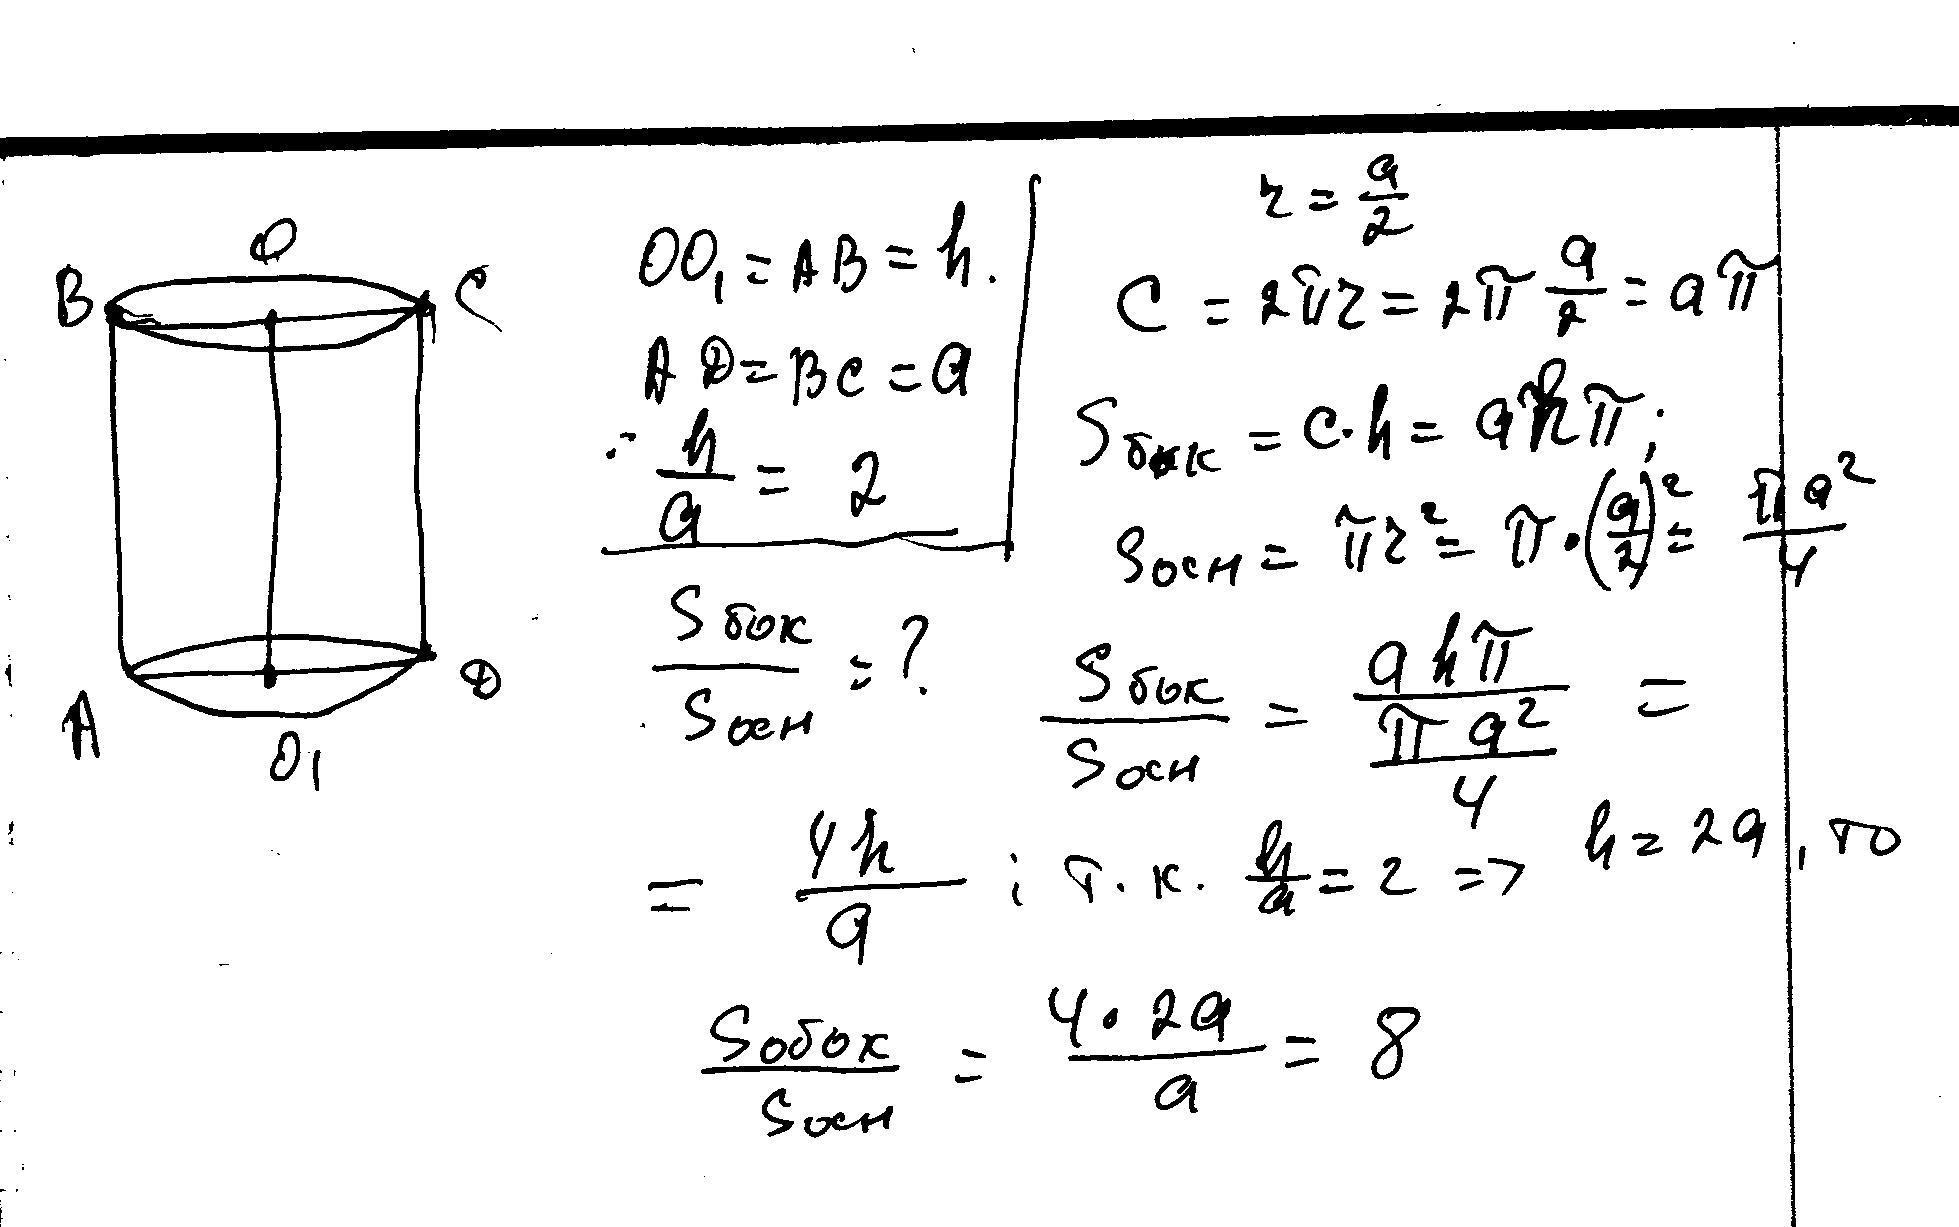 O
B
C
A
D
O₁
OO₁ = AB = h.
AD = BC = a
h/a = 2
Sбок/Sосн = ?
r = a/2
C = 2πr = 2π a/2 = aπ
Sбок = C·h = ahπ;
Sосн = πr² = π·(a/2)² = πa²/4
Sбок/Sосн = ahπ/(πa²/4) =
= 4h/a ; т.к. h/a = 2 => h = 2a, то
Sобок/Sосн = 4·2a/a = 8